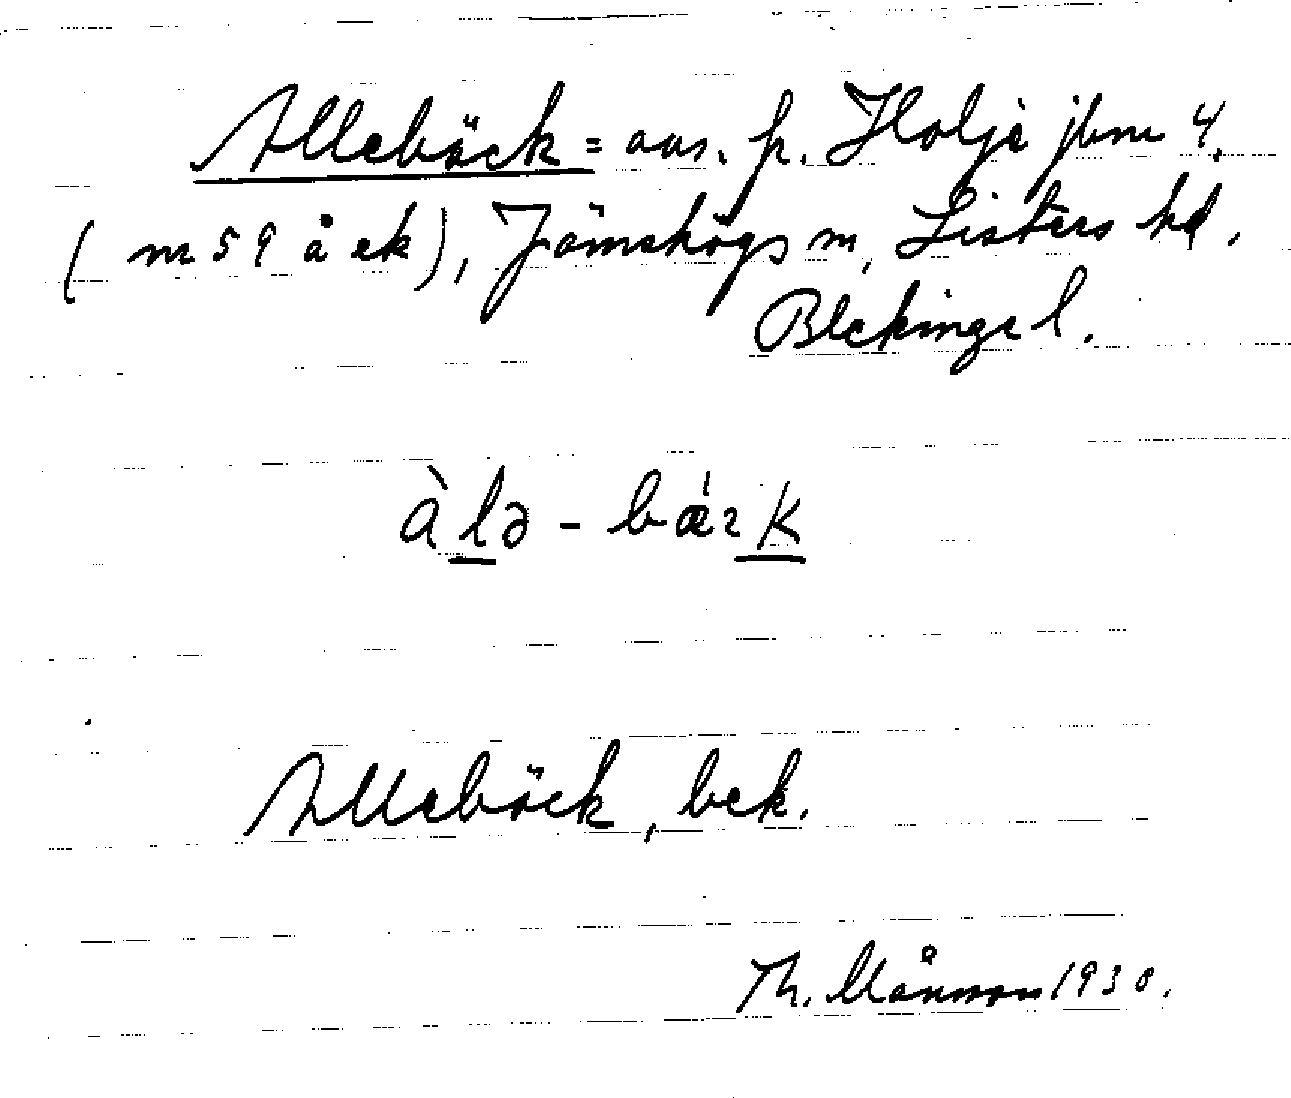 Allebäck = avs. p. Holje jbnr 4,
(nr 59 å ek), Jämshögs sn, Listers hd,
Blekinge l.
àlə - bæ´ɿk
Allebäck, bek.
Th. Månsson 1930.